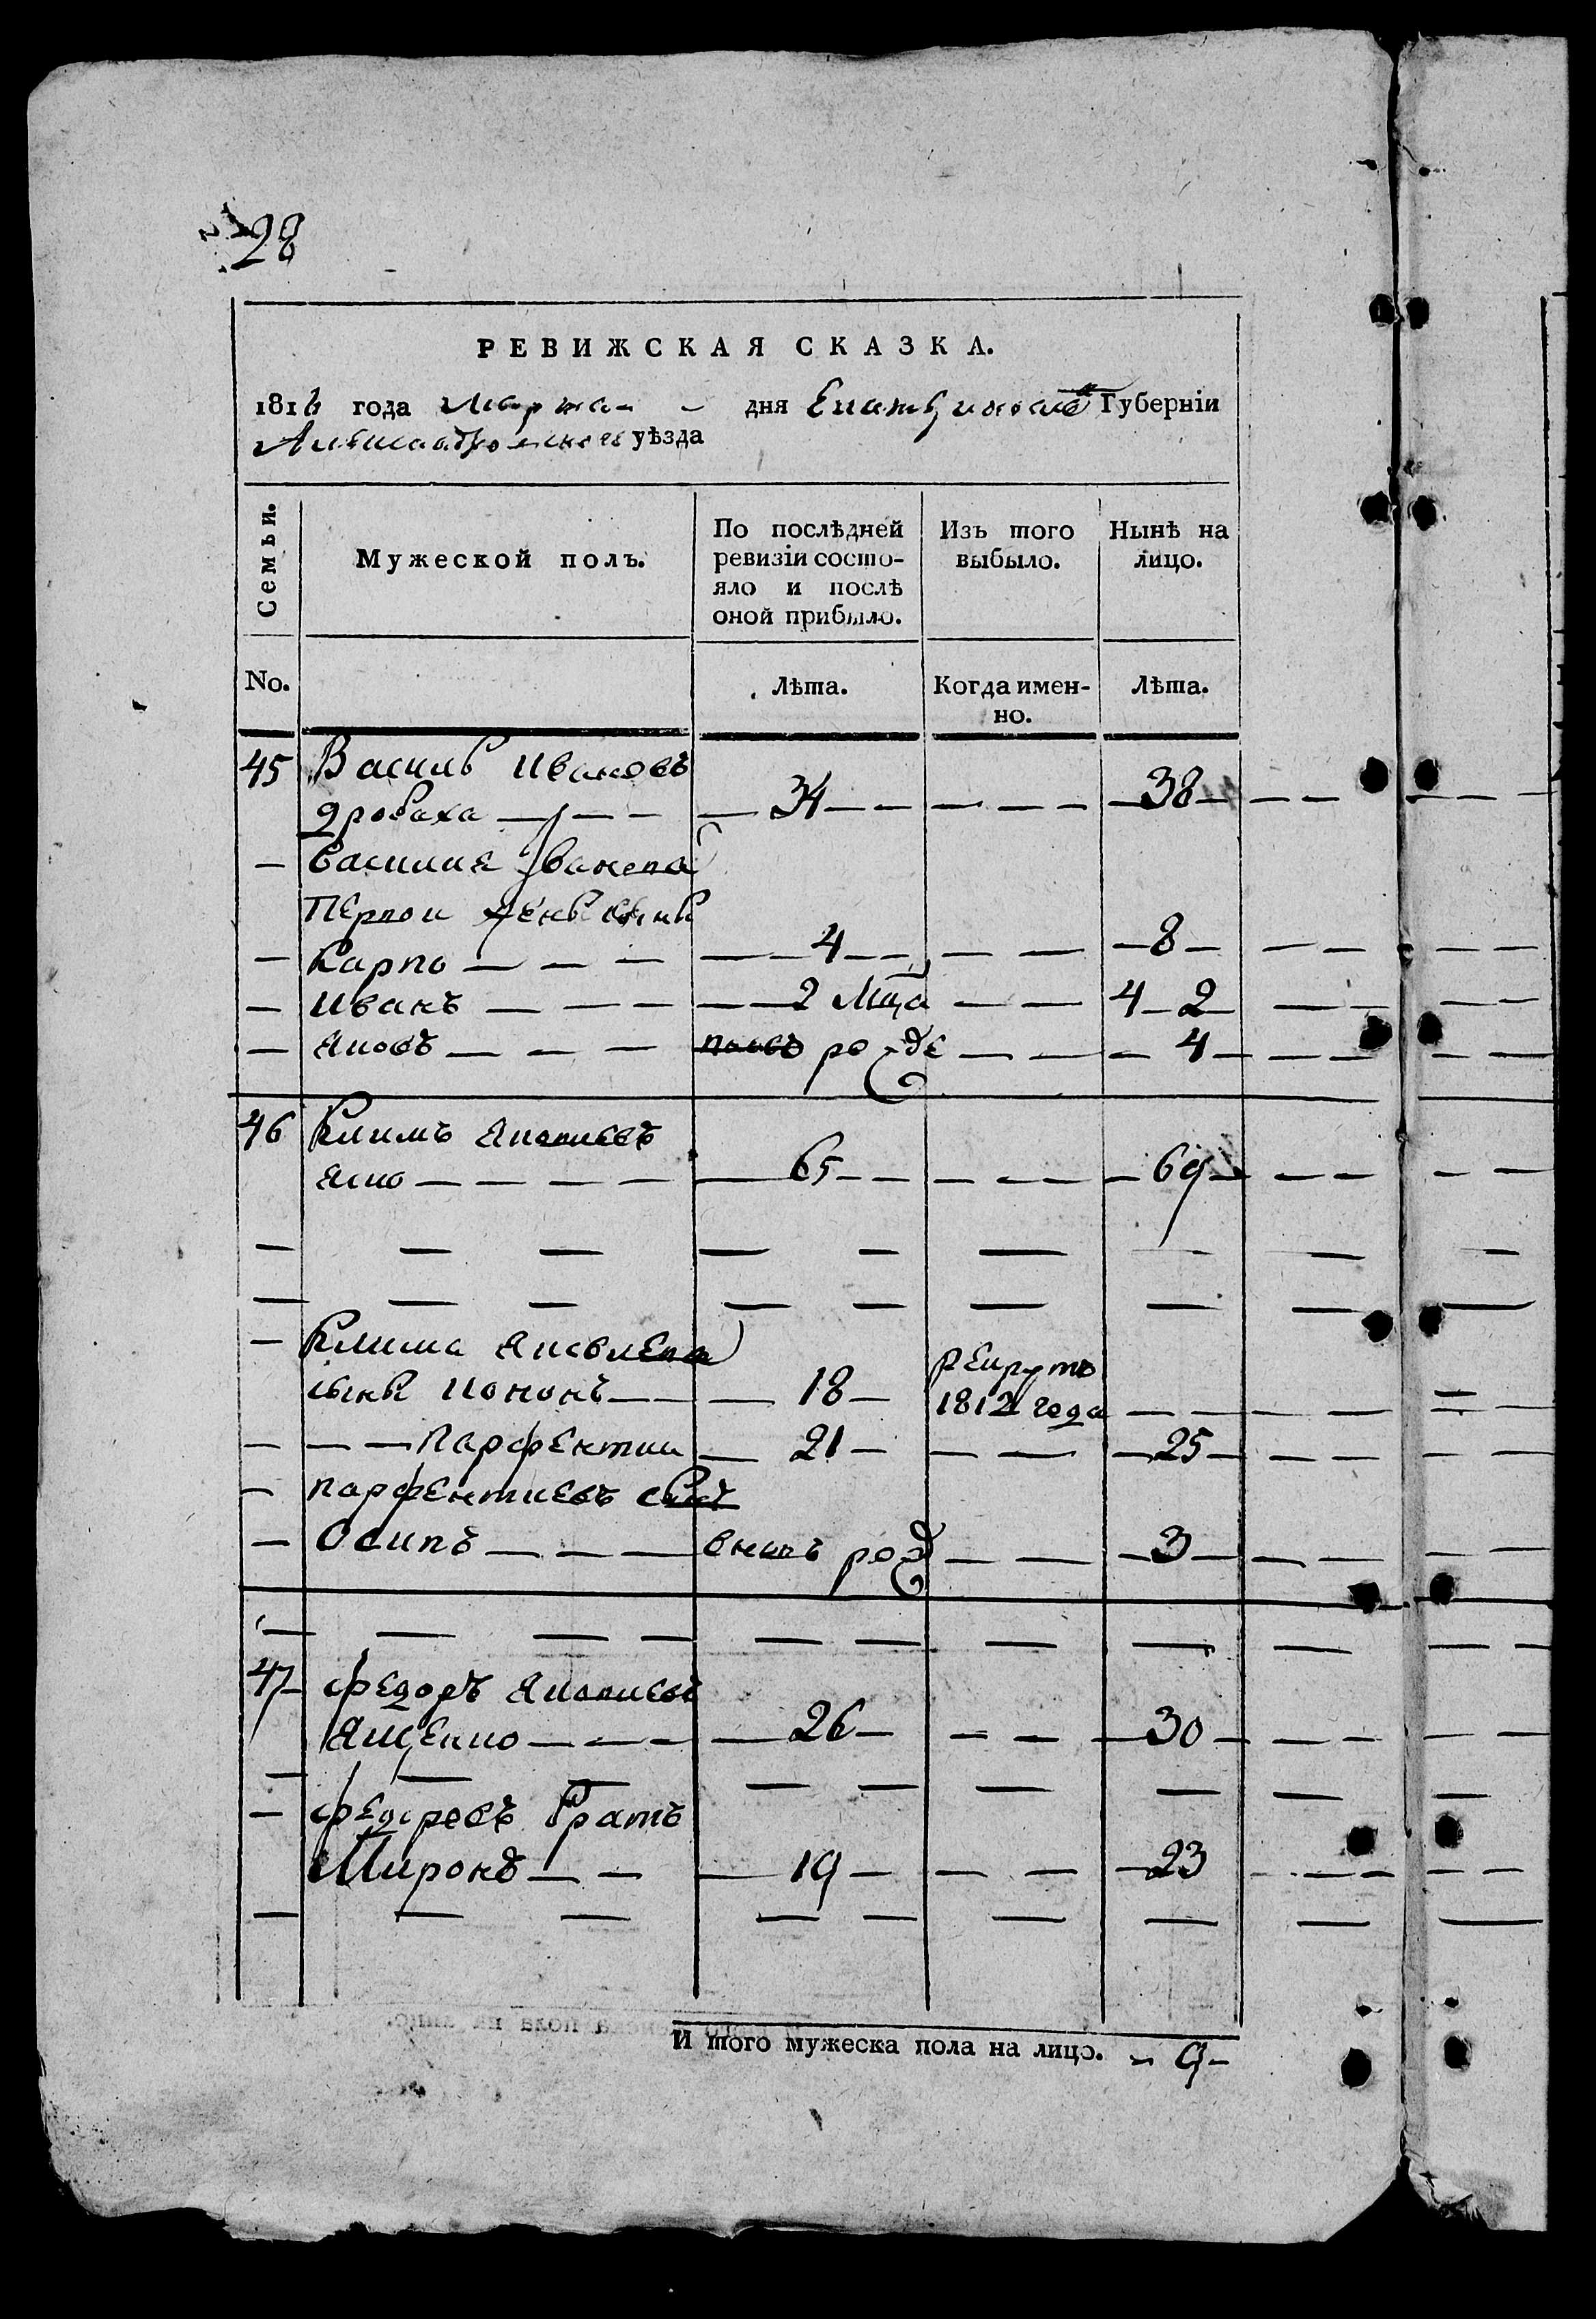 28
РЕВИЖСКАЯ СКАЗКА.
1816 года Марта дня Екатҍринославской Губерніи
Александрійского уѣзда
Семьи.
Мужеской полъ.
По послѣдней ревизіи состо-яло и послѣ оной прибыло.
Изъ того выбыло.
Нынѣ на лицо.
No.
Лѣта.
Когда имен-но.
Лѣта.
45 Василь Ивановъ
дробаха 34 38
Василия Иванова
первой сыны
Карпо 4 8
Иванъ 2 Мца 4 2
Яковъ рожде 4
46 Климъ Яковлевъ
65 69
Клима Яковлева
сынъ Кононъ 18 рекрутъ 1812 года
Парфентии 21 25
парфентиевъ сынъ
Осипъ вновь рожд 3
47 федоръ Яковлевъ
Ященко 26 30
федоровъ братъ
Миронъ 19 23
И того мужеска пола на лицо. 9